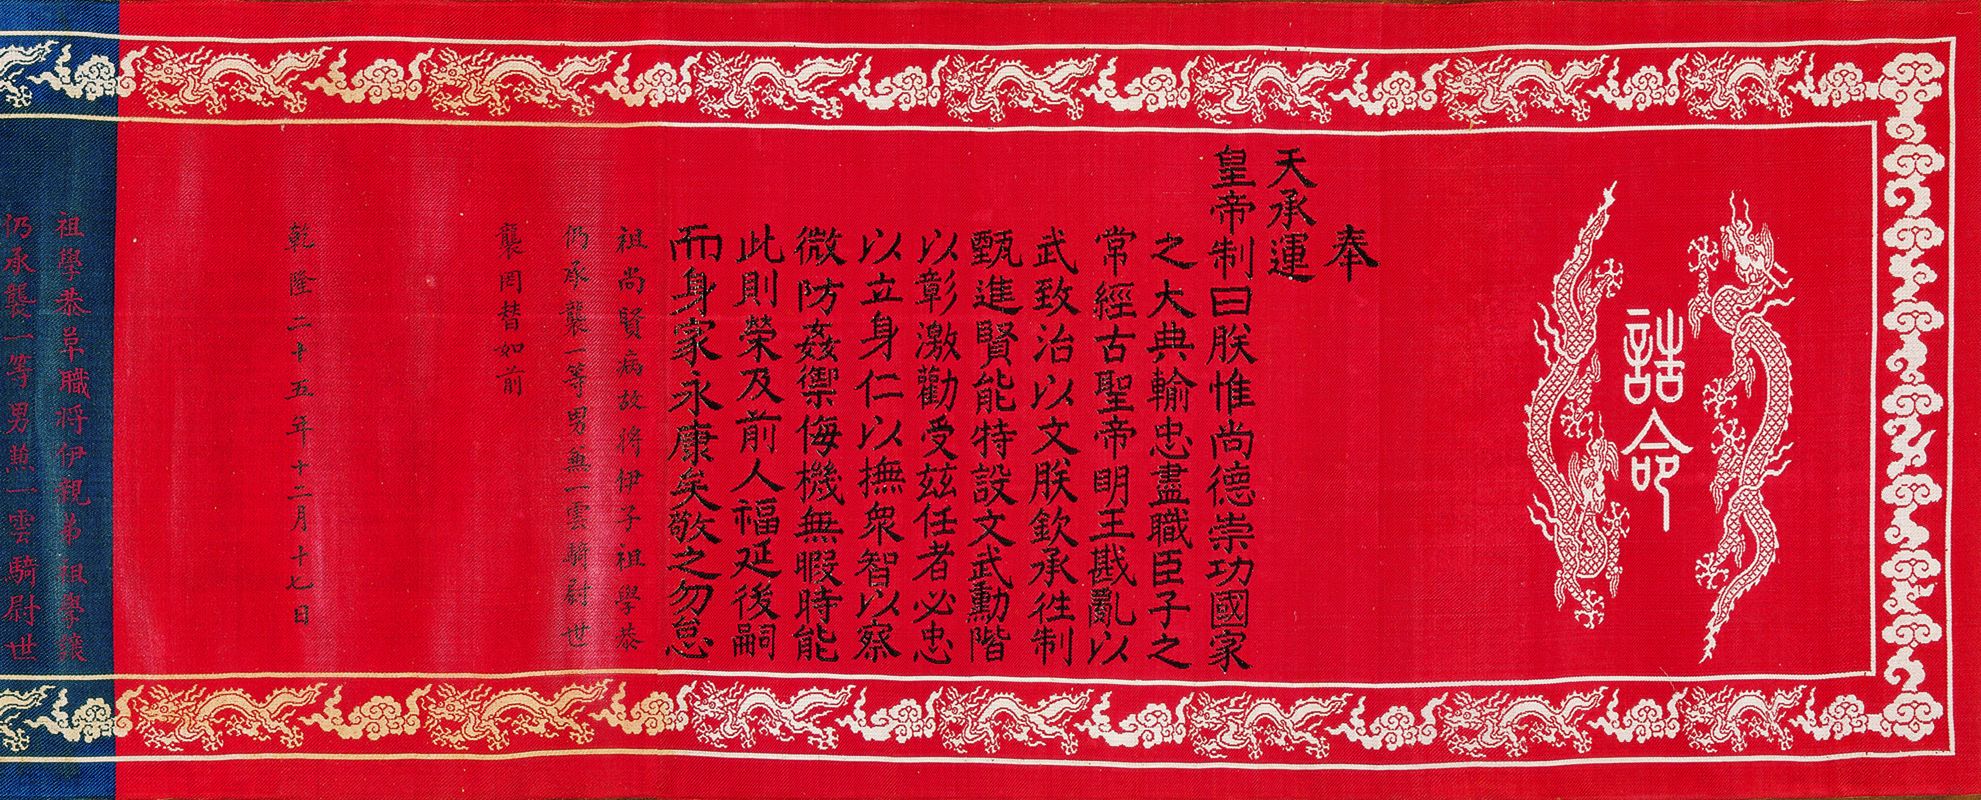 誥命
奉
天承運
皇帝制曰朕惟尚德崇功國家
之大典輸忠盡職臣子之
常經古聖帝明王戡亂以
武致治以文朕欽承往制
甄進賢能特設文武勳階
以彰激勸受茲任者必忠
以立身仁以撫衆智以察
微防姦禦侮機無暇時能
此則榮及前人福延後嗣
而身家永康矣敬之勿怠
祖尚賢病故將伊子祖學恭
仍承襲一等男無一雲騎尉世
襲罔替如前
乾隆二十五年十二月十七日
祖學恭革職將伊親弟祖學
仍承襲一等男無一雲騎尉世